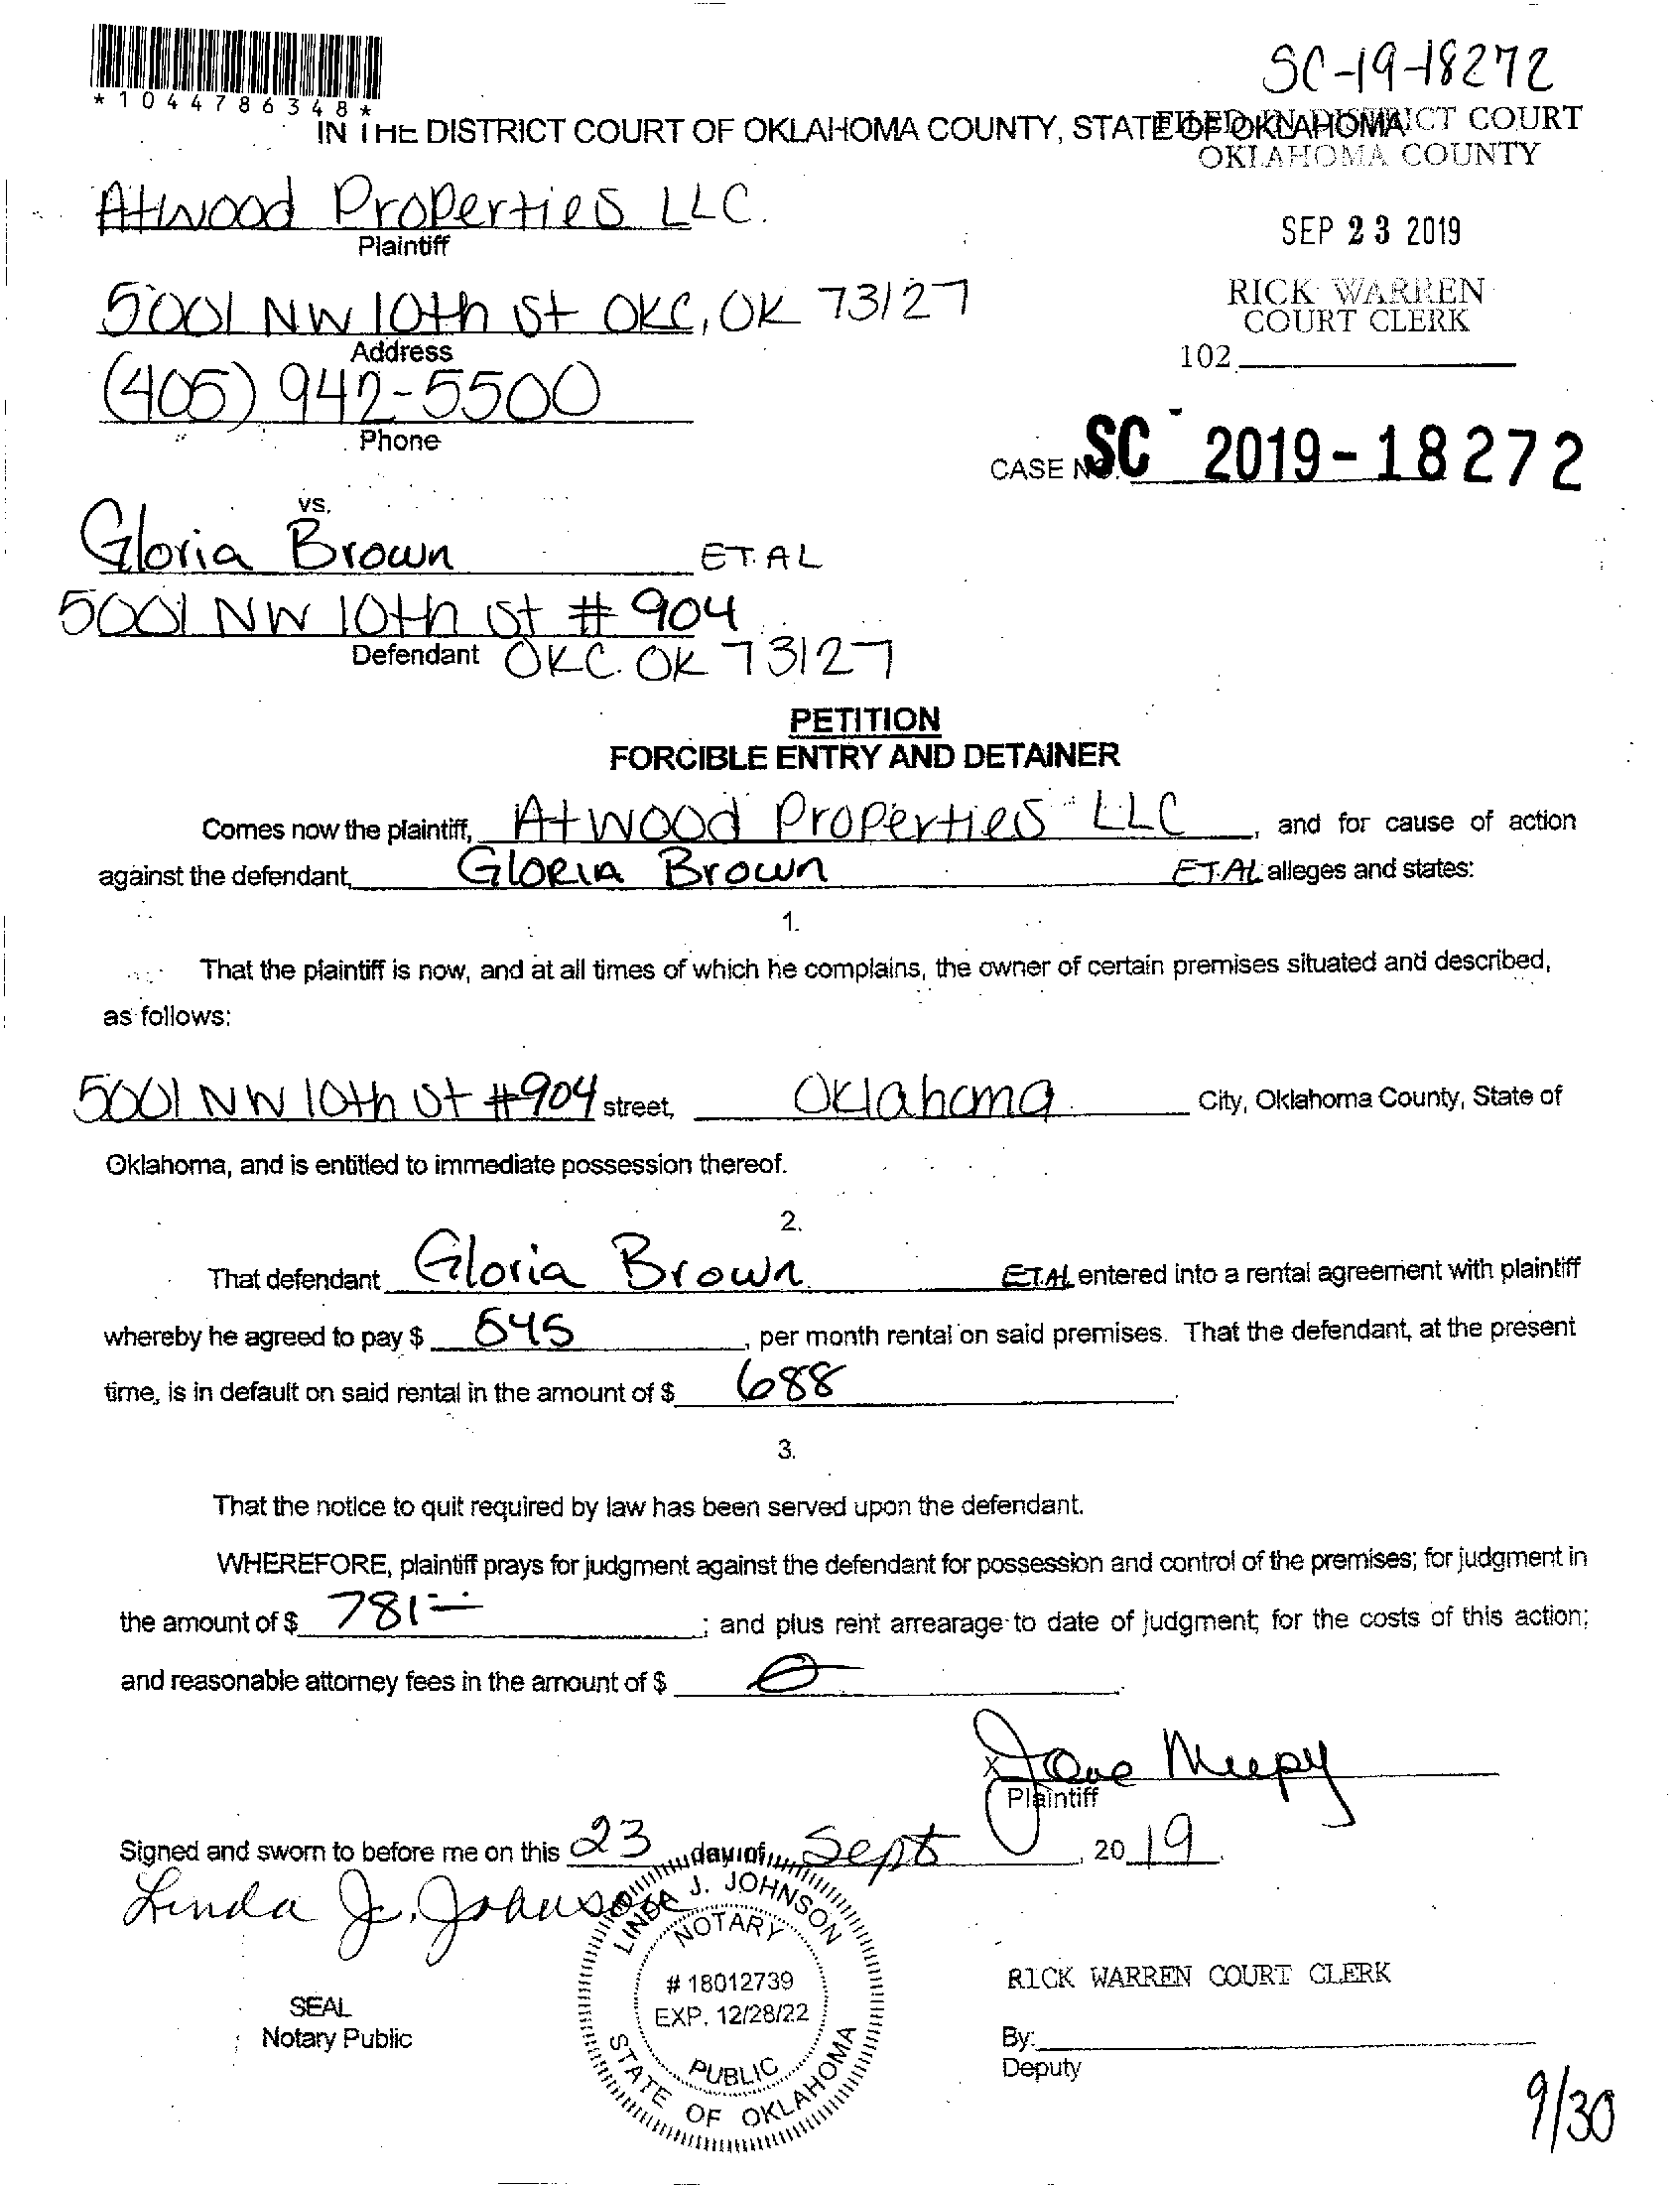 *1044786348*
SC-19-18272
IN THE DISTRICT COURT OF OKLAHOMA COUNTY, STATE OF OKLAHOMA
FILED IN DISTRICT COURT
OKLAHOMA COUNTY
Atwood Properties LLC.
Plaintiff
SEP 23 2019
5001 NW 10th St OKC, OK 73127
Address
RICK WARREN
COURT CLERK
102
(405) 942-5500
Phone
CASE NO. SC 2019-18272
vs.
Gloria Brown ET.AL
5001 NW 10th St # 904
Defendant OKC. OK 73127
PETITION
FORCIBLE ENTRY AND DETAINER
Comes now the plaintiff, Atwood Properties LLC, and for cause of action
against the defendant, Gloria Brown ET.AL alleges and states:
1.
That the plaintiff is now, and at all times of which he complains, the owner of certain premises situated and described,
as follows:
5001 NW 10th St #904 street, Oklahoma City, Oklahoma County, State of
Oklahoma, and is entitled to immediate possession thereof.
2.
That defendant Gloria Brown ET.AL entered into a rental agreement with plaintiff
whereby he agreed to pay $ 545, per month rental on said premises. That the defendant, at the present
time, is in default on said rental in the amount of $ 688.
3.
That the notice to quit required by law has been served upon the defendant.
WHEREFORE, plaintiff prays for judgment against the defendant for possession and control of the premises; for judgment in
the amount of $ 781; and plus rent arrearage to date of judgment; for the costs of this action;
and reasonable attorney fees in the amount of $ 0.
x
Plaintiff
Signed and sworn to before me on this 23 day of Sept, 2019.
Linda J. Johnson
LINDA J. JOHNSON
NOTARY
# 18012739
EXP. 12/28/22
PUBLIC
STATE OF OKLAHOMA
SEAL
Notary Public
RICK WARREN COURT CLERK
By:
Deputy
9/30